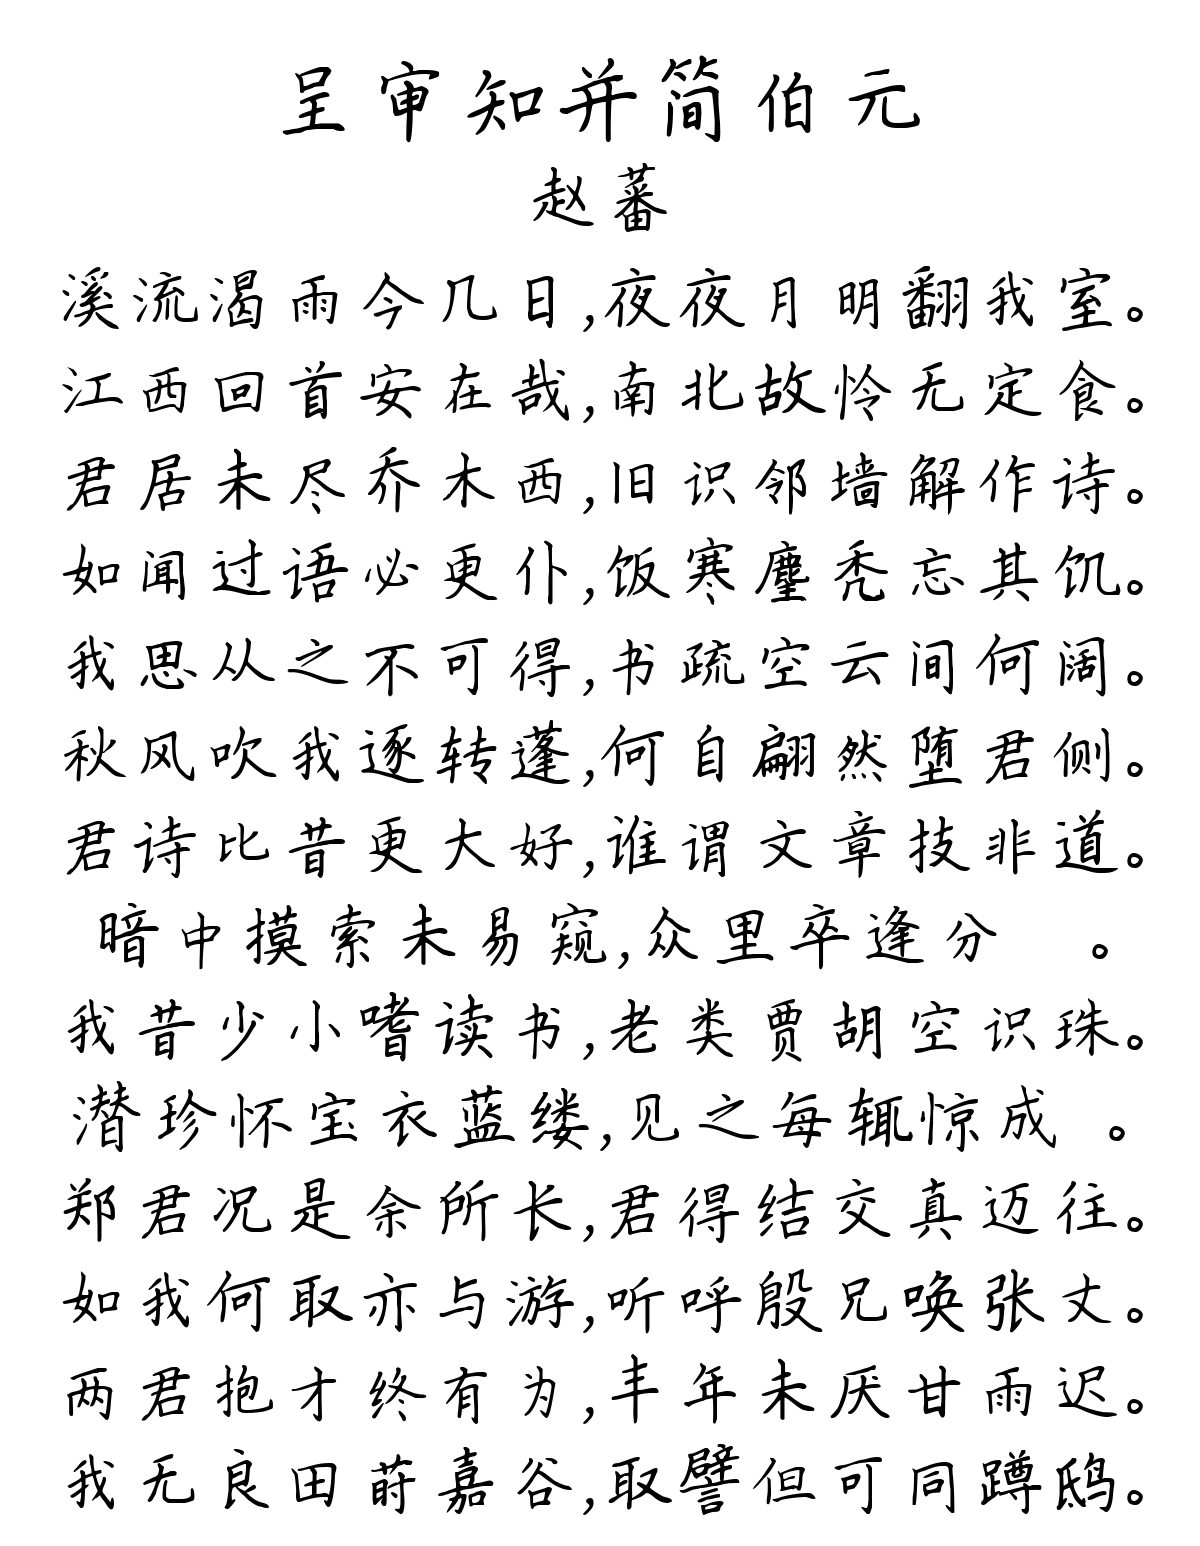 呈审知并简伯元
赵蕃
溪流渴雨今几日,夜夜月明翻我室。
江西回首安在哉,南北故怜无定食。
君居未尽乔木西,旧识邻墙解作诗。
如闻过语必更仆,饭寒麈秃忘其饥。
我思从之不可得,书疏空云间何阔。
秋风吹我逐转蓬,何自翩然堕君侧。
君诗比昔更大好,谁谓文章技非道。
暗中摸索未易窥,众里卒逢分 。
我昔少小嗜读书,老类贾胡空识珠。
潜珍怀宝衣蓝缕,见之每辄惊成 。
郑君况是余所长,君得结交真迈往。
如我何取亦与游,听呼殷兄唤张丈。
两君抱才终有为,丰年未厌甘雨迟。
我无良田莳嘉谷,取譬但可同蹲鸱。